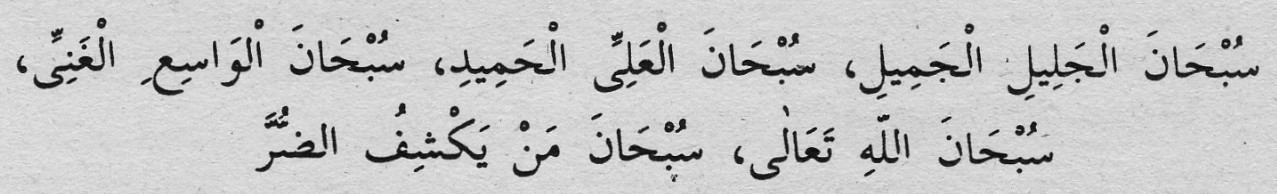 سُبْحَانَ الْجَلِيلِ الْجَمِيلِ، سُبْحَانَ الْعَلِىِّ الْحَمِيدِ، سُبْحَانَ الْوَاسِعِ الْغَنِىِّ،
سُبْحَانَ اللّٰهِ تَعَالٰى، سُبْحَانَ مَنْ يَكْشِفُ الضُّرَّ